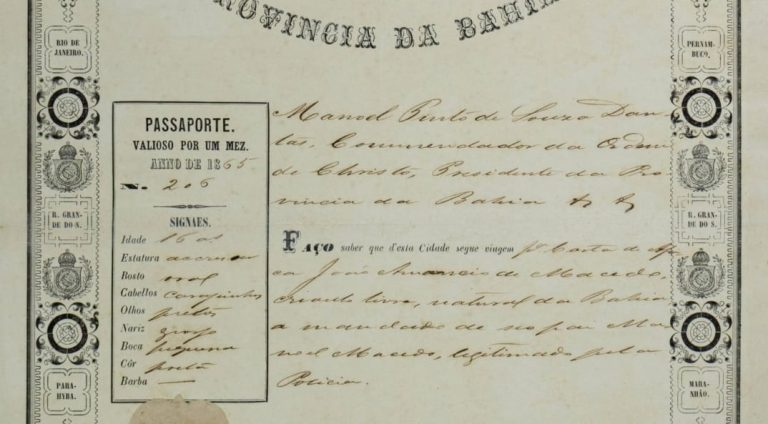 PROVINCIA DA BAHIA
RIO DE
JANEIRO.
PERNAM-
BUCO.
R. GRAN-
DE DO S.
R. GRAN-
DE DO S.
PARA-
HYBA.
MARA-
NHÃO.
PASSAPORTE.
VALIOSO POR UM MEZ.
ANNO DE 1865
N. 206
SIGNAES.
Idade 16 as
Estatura
Rosto oval
Cabellos carapinhos
Olhos pretos
Nariz grosso
Boca pequena
Côr preta
Barba —
Manoel Pinto de Souza Dan-
tas, Commendador da Ordem
de Christo, Presidente da Pro-
vincia da Bahia
FAÇO saber que d'esta Cidade segue viagem pa Costa de Af
ca João de Macedo,
creoulo livre, natural da Bahia
a mandado de seo pai Ma
noel Macedo, legitimado pela
Policia.